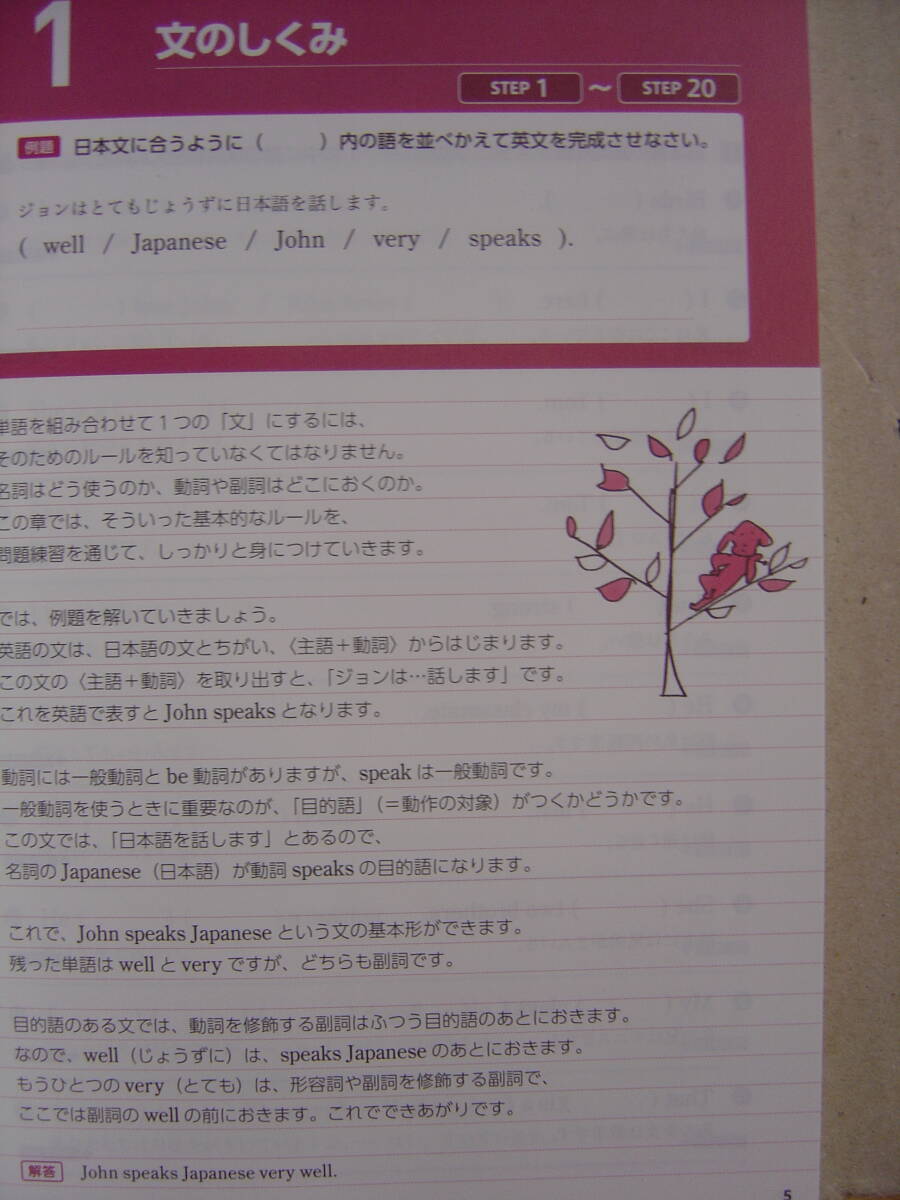 1
文のしくみ
STEP 1 ～ STEP 20
例題 日本文に合うように（　　　）内の語を並べかえて英文を完成させなさい。
ジョンはとてもじょうずに日本語を話します。
( well / Japanese / John / very / speaks ).
単語を組み合わせて1つの「文」にするには、
そのためのルールを知っていなくてはなりません。
名詞はどう使うのか、動詞や副詞はどこにおくのか。
この章では、そういった基本的なルールを、
問題練習を通じて、しっかりと身につけていきます。
では、例題を解いていきましょう。
英語の文は、日本語の文とちがい、〈主語＋動詞〉からはじまります。
この文の〈主語＋動詞〉を取り出すと、「ジョンは…話します」です。
これを英語で表すと John speaks となります。
動詞には一般動詞と be 動詞がありますが、speak は一般動詞です。
一般動詞を使うときに重要なのが、「目的語」（＝動作の対象）がつくかどうかです。
この文では、「日本語を話します」とあるので、
名詞の Japanese（日本語）が動詞 speaks の目的語になります。
これで、John speaks Japanese という文の基本形ができます。
残った単語は well と very ですが、どちらも副詞です。
目的語のある文では、動詞を修飾する副詞はふつう目的語のあとにおきます。
なので、well（じょうずに）は、speaks Japanese のあとにおきます。
もうひとつの very（とても）は、形容詞や副詞を修飾する副詞で、
ここでは副詞の well の前におきます。これでできあがりです。
解答 John speaks Japanese very well.
5